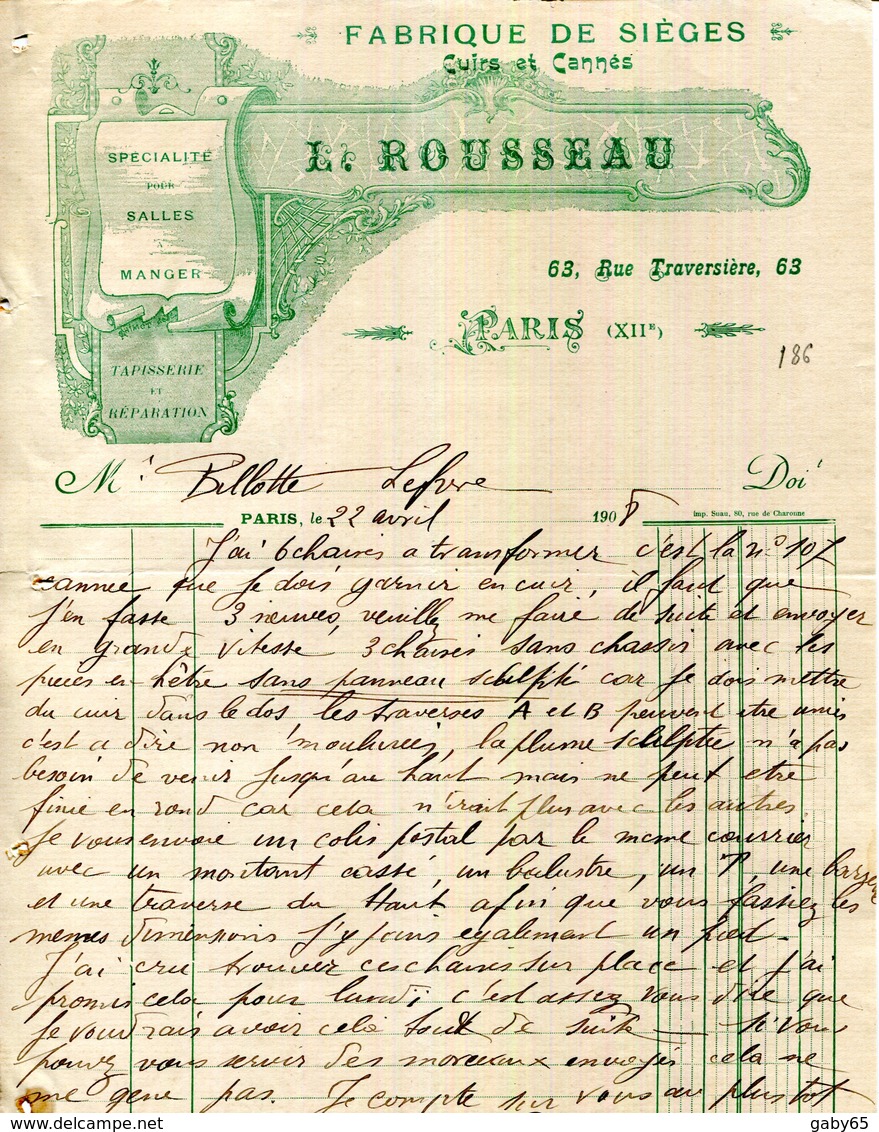 FABRIQUE DE SIÈGES
Cuirs et Cannés
L. ROUSSEAU
SPÉCIALITÉ
POUR
SALLES
À
MANGER
TAPISSERIE
ET
RÉPARATION
63, Rue Traversière, 63
PARIS (XIIE)
186
M Billotte Lefevre Doit
PARIS, le 22 avril 1908
imp. Suau, 80, rue de Charonne
J'ai 6 chaises a transformer c'est la no 107
cannee que je dois garnir en cuir, il faut que
j'en fasse 3 neuves, veuillez me faire de suite et envoyer
en grande vitesse 3 chaises sans chassis avec les
pieces en hêtre sans panneau sculpté car je dois mettre
du cuir dans le dos les traverses A et B peuvent etre unies
c'est a dire non moulurées, la plume sculptée n'a pas
besoin de venir jusqu'au haut mais ne peut etre
finie en rond car cela n'irait plus avec les autres
Je vous envoie un colis postal par le meme courrier
avec un montant cassé, un balustre, un T, une
et une traverse du Haut afin que vous fassiez les
memes dimensions J'y joins egalement un pied -
J'ai cru trouver ces chaises sur place et j'ai
promis cela pour lundi, c'est assez vous dire que
je voudrais avoir cela tout de suite — si vous
pouvez vous servir des morceaux envoyés cela ne
me gene pas. Je compte sur vous au plus tot
gaby65